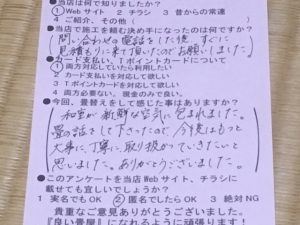 ●当店は何で知りましたか？
①Webサイト 2 チラシ 3 昔からの常連
4 ご紹介、その他（
●当店で施工を頼む決め手になったのは何ですか？
問い合わせの電話をした後、すぐに
見積もりに来て頂いたのでお願いしました
●カード支払い、Tポイントカードについて
①両方対応していたら利用したい
2 カード支払いを対応して欲しい
3 Tポイントカードを対応して欲しい
4 両方必要ない。現金のみで良い。
●今回、畳替えをして感じた事はありますか？
和室が新鮮な空気に包まれました。
畳の話をして下さったので今後はもっと
大事に、丁寧に、取り扱かっていきたいと
思いました。ありがとうございました。
●このアンケートを当店Webサイト、チラシに
載せても宜しいでしょうか？
1 実名でもOK ②匿名でしたらOK 3 絶対NG
貴重なご意見ありがとうございました。
『良い畳屋』になれるように頑張ります！